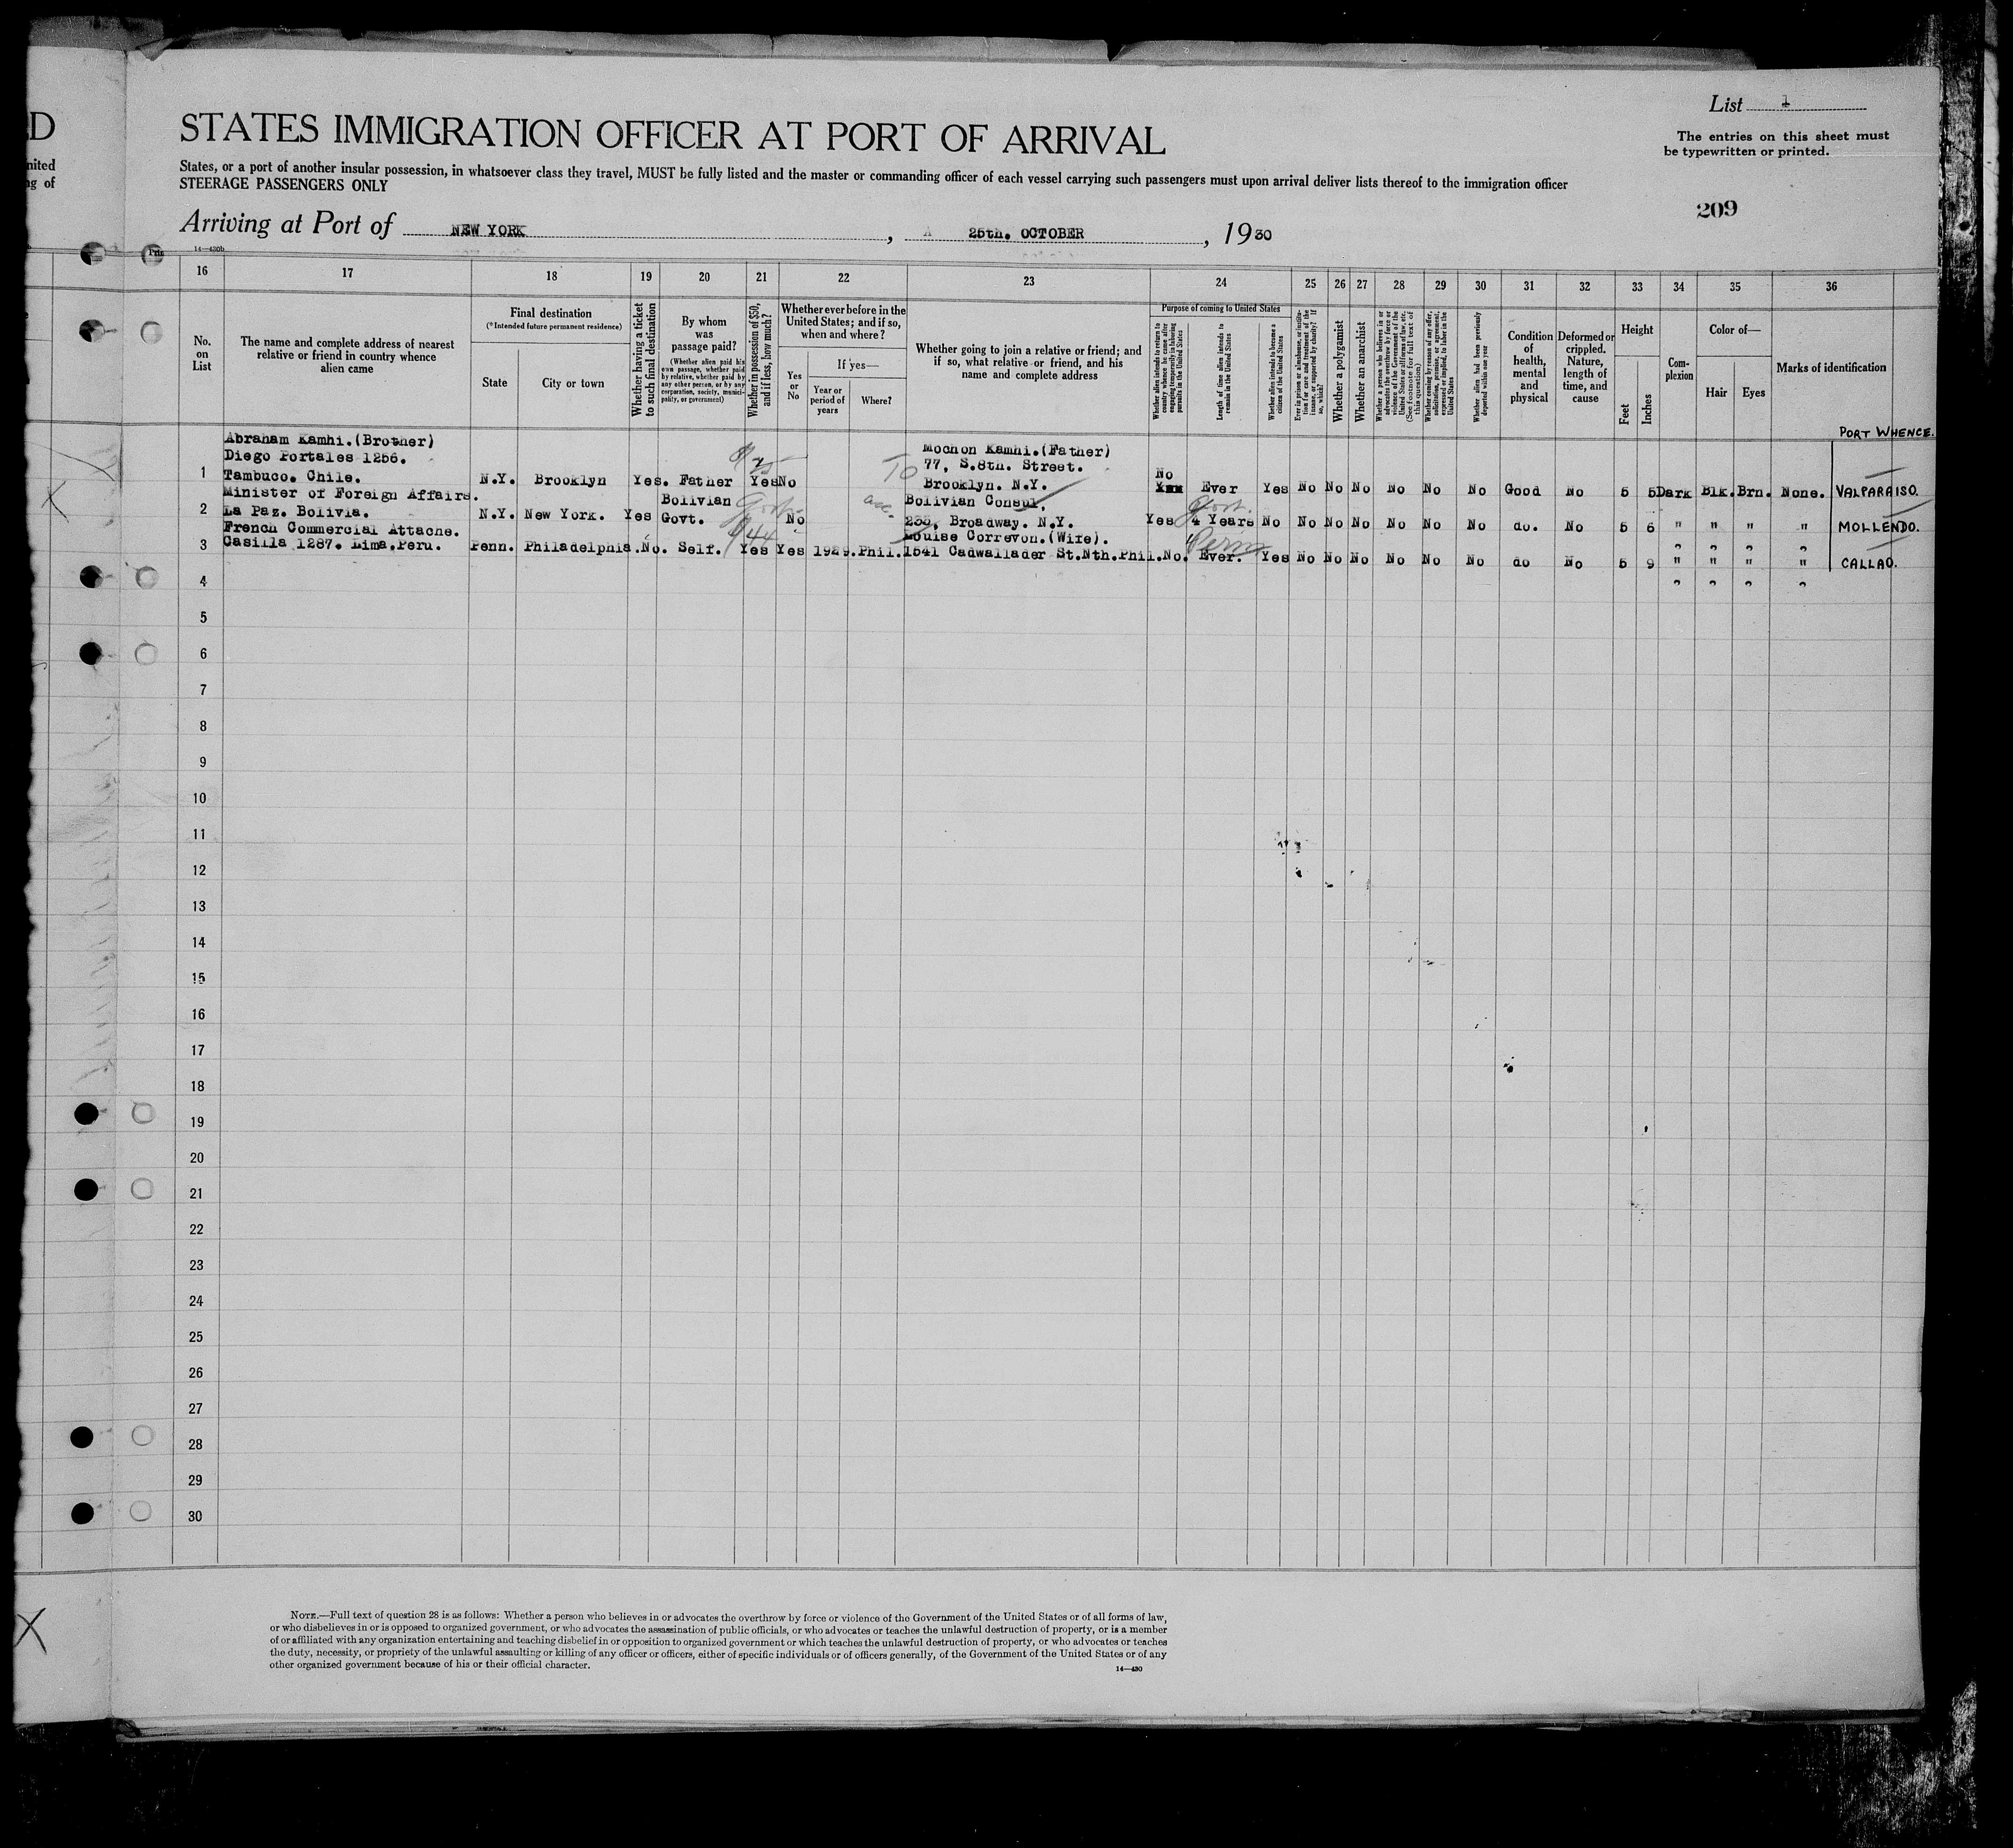 D
nited
ng of
List 1
STATES IMMIGRATION OFFICER AT PORT OF ARRIVAL
The entries on this sheet must
be typewritten or printed.
States, or a port of another insular possession, in whatsoever class they travel, MUST be fully listed and the master or commanding officer of each vessel carrying such passengers must upon arrival deliver lists thereof to the immigration officer
STEERAGE PASSENGERS ONLY
209
Arriving at Port of NEW YORK, 25th. OCTOBER, 1930
14—430b
16 17 18 19 20 21 22 23 24 25 26 27 28 29 30 31 32 33 34 35 36
No. on List
The name and complete address of nearest relative or friend in country whence alien came
Final destination
(*Intended future permanent residence)
State
City or town
Whether having a ticket to such final destination
By whom was passage paid?
(Whether alien paid his own passage, whether paid by relative, whether paid by any other person, or by any corporation, society, municipality, or government)
Whether in possession of $50, and if less, how much?
Whether ever before in the United States; and if so, when and where?
Yes or No
If yes—
Year or period of years
Where?
Whether going to join a relative or friend; and if so, what relative or friend, and his name and complete address
Purpose of coming to United States
Whether alien intends to return to country whence he came after engaging temporarily in laboring pursuits in the United States
Length of time alien intends to remain in the United States
Whether alien intends to become a citizen of the United States
Ever in prison or almshouse, or institution for care and treatment of the insane, or supported by charity? If so, which?
Whether a polygamist
Whether an anarchist
Whether a person who believes in or advocates the overthrow by force or violence of the Government of the United States or all forms of law, etc. (See footnote for full text of this question)
Whether coming by reason of any offer, solicitation, promise, or agreement, expressed or implied, to labor in the United States
Whether alien had been previously deported within one year
Condition of health, mental and physical
Deformed or crippled. Nature, length of time, and cause
Height
Feet
Inches
Complexion
Color of—
Hair
Eyes
Marks of identification
PORT WHENCE.
Abraham Kamhi.(Brother)
Diego Portales 1256.
1 Tambuco. Chile. N.Y. Brooklyn Yes. Father Yes No
Mochon Kamhi.(Father)
77, S.8th. Street.
Brooklyn. N.Y. No Ever Yes No No No No No No Good No 5 5 Dark Blk. Brn. None. VALPARAISO.
Minister of Foreign Affairs.
2 La Paz. Bolivia. N.Y. New York. Yes Bolivian Govt. Govt. No
Bolivian Consul,
233, Broadway. N.Y. Yes Govt. 4 Years No No No No No No No do. No 5 6 " " " " MOLLENDO.
French Commercial Attache.
3 Casilla 1287. Lima.Peru. Penn. Philadelphia. No. Self. Yes Yes 1929. Phil.
Louise Correvon.(Wife).
1541 Cadwallader St.Nth.Phil. No. Perm Ever. Yes No No No No No No do No 5 9 " " " " CALLAO.
4
5
6
7
8
9
10
11
12
13
14
15
16
17
18
19
20
21
22
23
24
25
26
27
28
29
30
NOTE.—Full text of question 28 is as follows: Whether a person who believes in or advocates the overthrow by force or violence of the Government of the United States or of all forms of law,
or who disbelieves in or is opposed to organized government, or who advocates the assassination of public officials, or who advocates or teaches the unlawful destruction of property, or is a member
of or affiliated with any organization entertaining and teaching disbelief in or opposition to organized government or which teaches the unlawful destruction of property, or who advocates or teaches
the duty, necessity, or propriety of the unlawful assaulting or killing of any officer or officers, either of specific individuals or of officers generally, of the Government of the United States or of any
other organized government because of his or their official character.
14—430